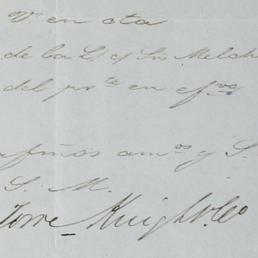 V en cta
de la L. of Sn Melch
del pr.te en ef.vo
afmos am.os y S.
S. M.
Torre Knight & Co